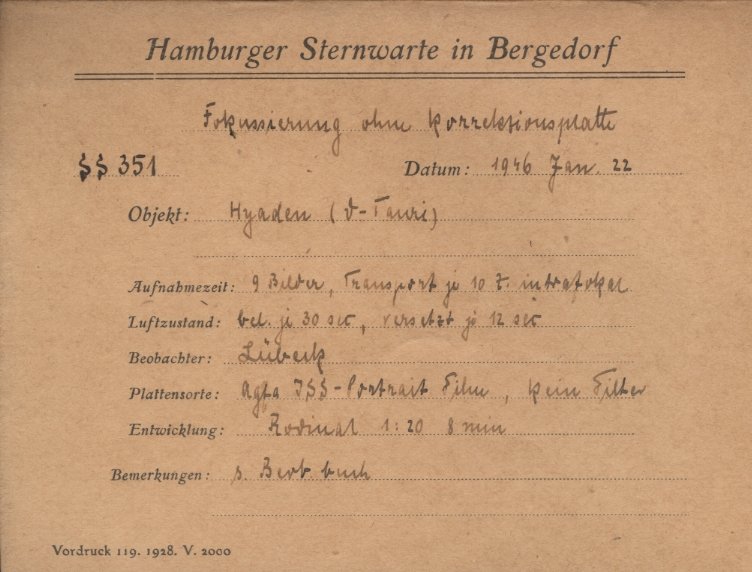 Hamburger Sternwarte in Bergedorf
Fokussierung ohne Korrektionsplatte
SS 351 Datum: 1946 Jan. 22
Objekt: Hyaden (ϑ-Tauri)
Aufnahmezeit: 9 Bilder, Transport je 10 Z. intrafokal
Luftzustand: bel. je 30 sec, versetzt je 12 sec
Beobachter: Lübeck
Plattensorte: Agfa ISS-Portrait Film, kein Filter
Entwicklung: Rodinal 1:20 8 min
Bemerkungen: s. Beob.buch
Vordruck 119. 1928. V. 2000